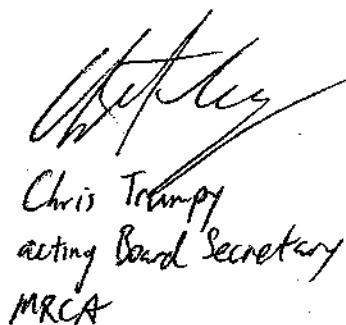 Chris Trumpy
acting Board Secretary
MRCA